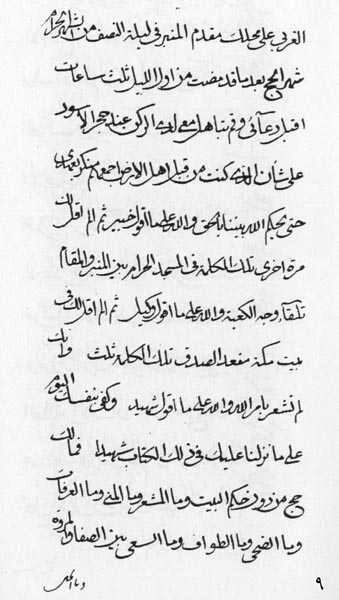 الغربي على محلك مقدم المنبر في ليلة النصف من الشهر الحرام
شهر الحج بعد ما قد مضت من اول الليل ثلث ساعات
اقبل دعائي وقم نباهل مع لدى الركن عند حجر الاسود
على شأن الذي كنت من قبل اهل الارض جمعهم منكر بعدى
حتى يحكم الله بيننا بالحق والله على ما اقول خبير ثم الم اقل لك
مرة اخرى تلك الكلمة في المسجد الحرام بين المنبر والمقام
تلقاء وجه الكعبة والله على ما اقول وكيل ثم الم اقل لك في
بيت مكة مقعد الصدق تلك الكلمة ثلث وانك
لم تشعر بامر الله والله على ما اقول شهيد وكفى بنفسك اليوم
على ما نزلنا عليك في ذلك الكتاب شهيدا فما لك
حج من دون حكم البيت وما المشعر وما المنى وما العرفات
وما الضحى وما الطواف وما السعي بين الصفا والمروة
وما الحل
٩